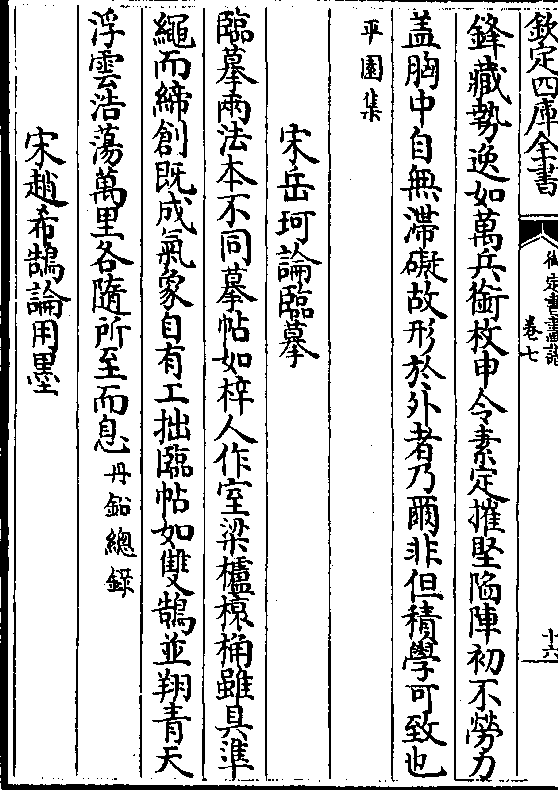 欽定四庫全書
御定書畫譜
卷七
十六
鋒藏勢逸如萬兵銜枚申令素定摧堅陷陣初不勞力
盖胸中自無滯礙故形於外者乃爾非但積學可致也
平園集
宋岳珂論臨摹
臨摹兩法本不同摹帖如梓人作室梁櫨榱桷雖具準
繩而締創既成氣象自有工拙臨帖如雙鵠並翔青天
浮雲浩蕩萬里各隨所至而息丹鉛總錄
宋趙希鵠論用墨